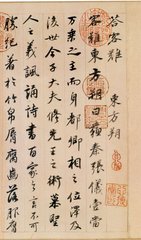 答客難
東方朔
客難東方朔曰蘇秦張儀壹當
万乘之主而身都卿相之位澤及
後世今子大夫脩先王之術慕聖
人之義諷誦詩書百家之言不可
勝記著於竹帛脣腐齒落服膺